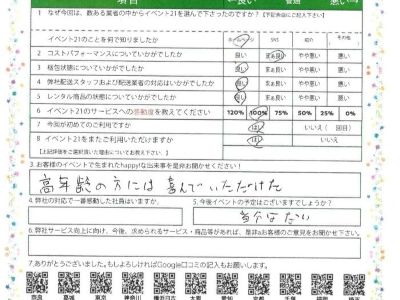 項目 ←良い 普通 悪い→
1 なぜ今回は、数ある業者の中からイベント21を選んで下さったのですか?【下記余白にご記入下さい】
イベント21のことを何で知りましたか SNS 紹介 その他
2 コストパフォーマンスについていかがでしたか 良い まぁ良い やや悪い 悪い
3 梱包状態についていかがでしたか 良い まぁ良い やや悪い 悪い
4 弊社配送スタッフおよび配送業者の対応はいかがでしたか 良い まぁ良い やや悪い 悪い
5 レンタル商品の状態についていかがでしたか 良い まぁ良い やや悪い 悪い
6 イベント21のサービスへの感動度を教えてください 120% 100% 75% 50% 25% 0%
7 今回が初めてのご利用ですか はい いいえ( 回目)
8 イベント21をまたご利用いただけますか はい いいえ
【上記評価をご選択頂いた理由についてお教え下さい】
3.お客様のイベントで生まれたhappy!な出来事を是非お聞かせください!
高年齢の方には喜んでいただけた
4.弊社の対応で一番感動した社員はいますか。
5.今後イベントの予定はございますでしょうか?
当分はない
6.弊社サービス向上に向け、今後、求められるサービス・商品等があれば、是非お客様のご意見をお聞かせ下さい。
7.ありがとうございました。もしよろしければGoogle口コミの記入もお願いします。
奈良 葛城 東京 神奈川 横浜 大阪 愛知 京都 千葉 埼玉